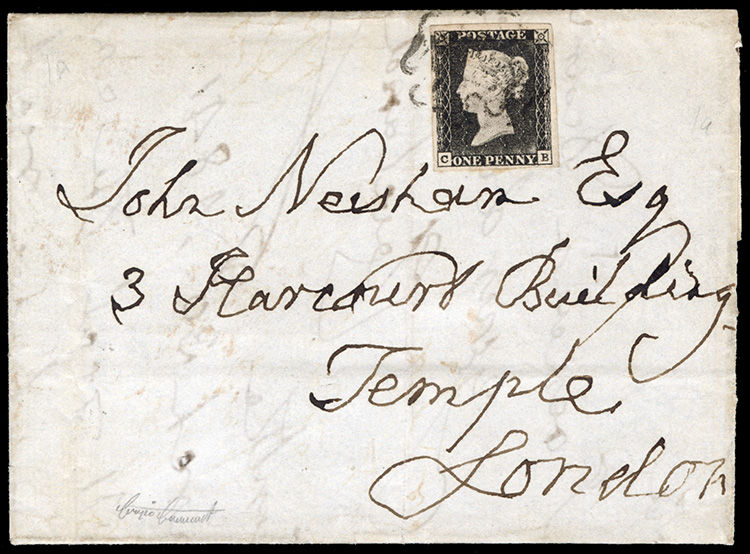 POSTAGE
C ONE PENNY B
John Neishan Esq
3 Harcourt Building
Temple
London